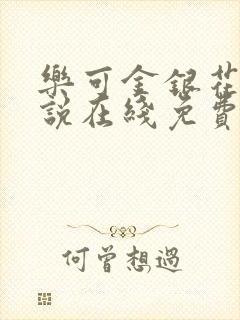 樂可金銀花
說在綫免費
何曾想過